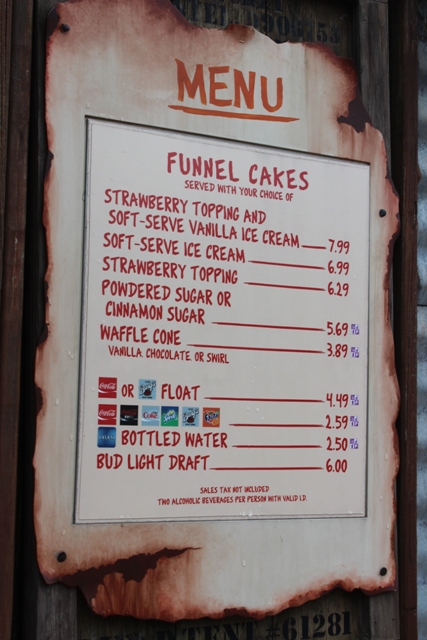 MENU
FUNNEL CAKES
SERVED WITH YOUR CHOICE OF
STRAWBERRY TOPPING AND
SOFT-SERVE VANILLA ICE CREAM 7.99
SOFT-SERVE ICE CREAM 6.99
STRAWBERRY TOPPING 6.29
POWDERED SUGAR OR
CINNAMON SUGAR 5.69
WAFFLE CONE 3.89
VANILLA, CHOCOLATE, OR SWIRL
Coca-Cola OR FLOAT 4.49
Coca-Cola 2.59
BOTTLED WATER 2.50
BUD LIGHT DRAFT 6.00
SALES TAX NOT INCLUDED
TWO ALCOHOLIC BEVERAGES PER PERSON WITH VALID I.D.
#61281